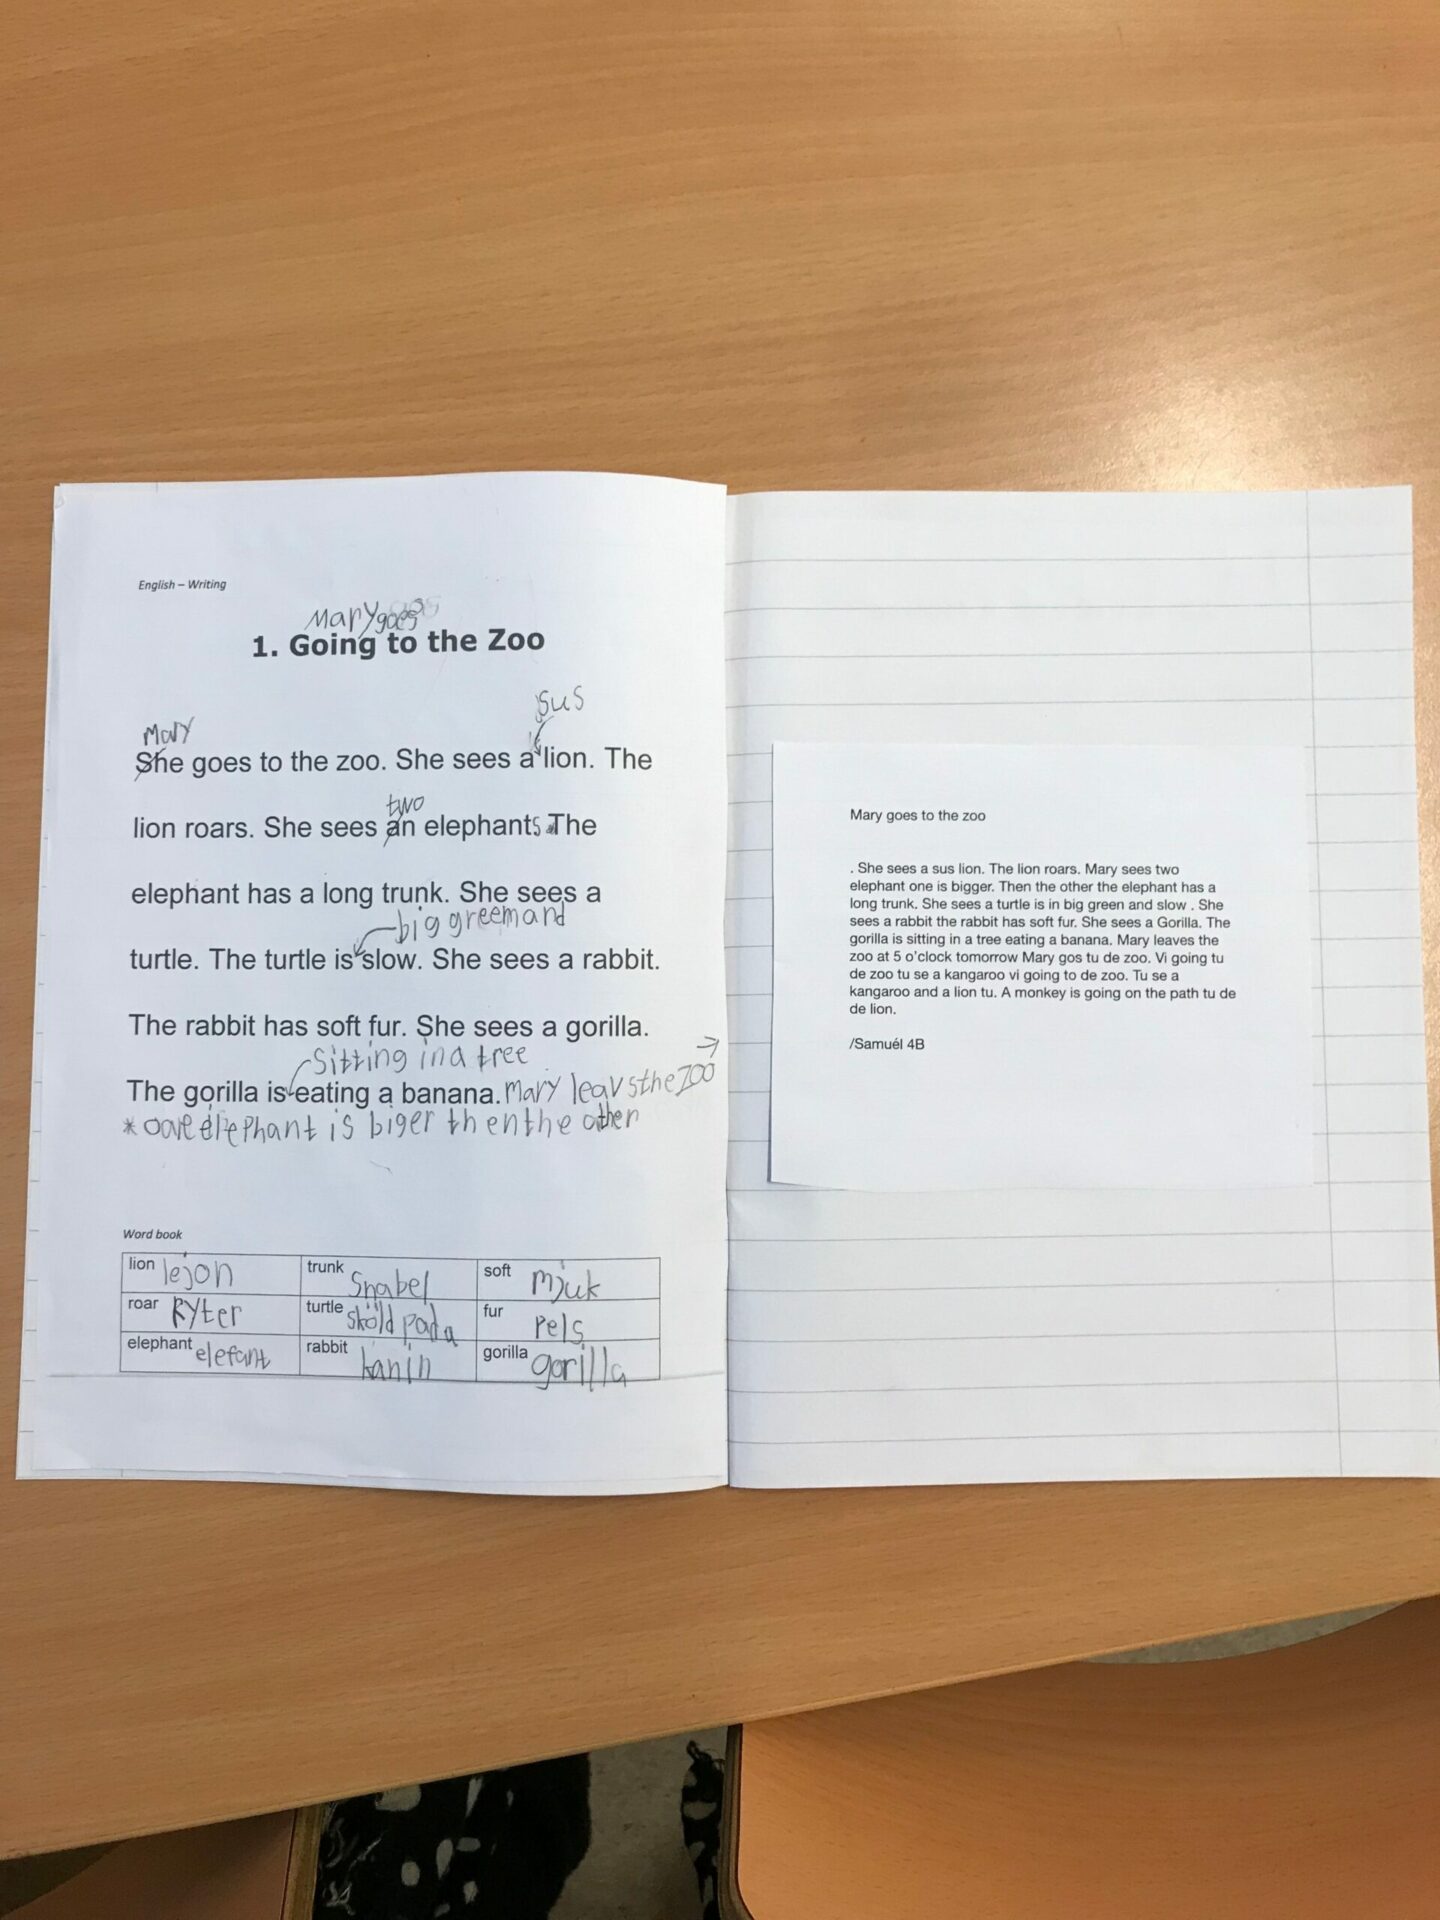 English – Writing
Mary goes
1. Going to the Zoo
sus
Mary
She goes to the zoo. She sees a lion. The
two
lion roars. She sees an elephants. The
elephant has a long trunk. She sees a
big green and
turtle. The turtle is slow. She sees a rabbit.
The rabbit has soft fur. She sees a gorilla.
Sitting in a tree
The gorilla is eating a banana. Mary leavs the zoo →
* elephant is biger then the other
Word book
lion lejon
trunk Snabel
soft mjuk
roar Ryter
turtle sköldpada
fur Pels
elephant elefant
rabbit kanin
gorilla gorilla
Mary goes to the zoo
. She sees a sus lion. The lion roars. Mary sees two
elephant one is bigger. Then the other the elephant has a
long trunk. She sees a turtle is in big green and slow . She
sees a rabbit the rabbit has soft fur. She sees a Gorilla. The
gorilla is sitting in a tree eating a banana. Mary leaves the
zoo at 5 o'clock tomorrow Mary gos tu de zoo. Vi going tu
de zoo tu se a kangaroo vi going to de zoo. Tu se a
kangaroo and a lion tu. A monkey is going on the path tu de
de lion.
/Samuél 4B